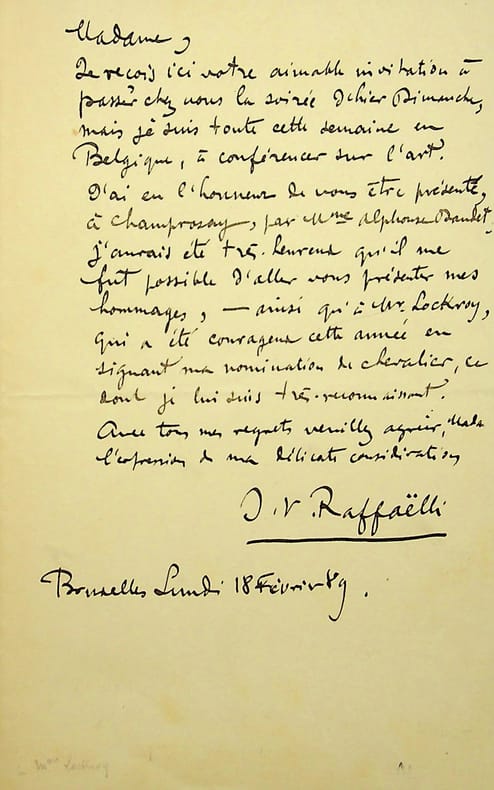 Madame,
Je reçois ici votre aimable invitation à
passer chez vous la soirée d'hier Dimanche,
mais je suis toute cette semaine en
Belgique, à conférencer sur l'art.
J'ai eu l'honneur de vous être présenté,
à Champrosay, par Mme Alphonse Daudet.
J'aurais été très-heureux qu'il me
fut possible d'aller vous présenter mes
hommages, — ainsi qu'à Mr. Lockroy,
qui a été courageux cette année en
signant ma nomination de chevalier, ce
dont je lui suis très-reconnaissant.
Avec tous mes regrets veuillez agréer, Mada
l'expression de ma délicate considération
J. F. Raffaëlli
Bruxelles Lundi 18 Février 89.
Mme Lockroy